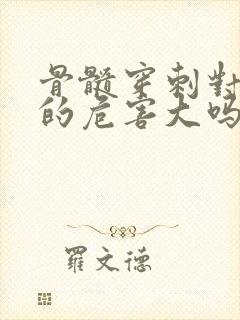 骨髓穿刺對
的危害大吗
羅文德